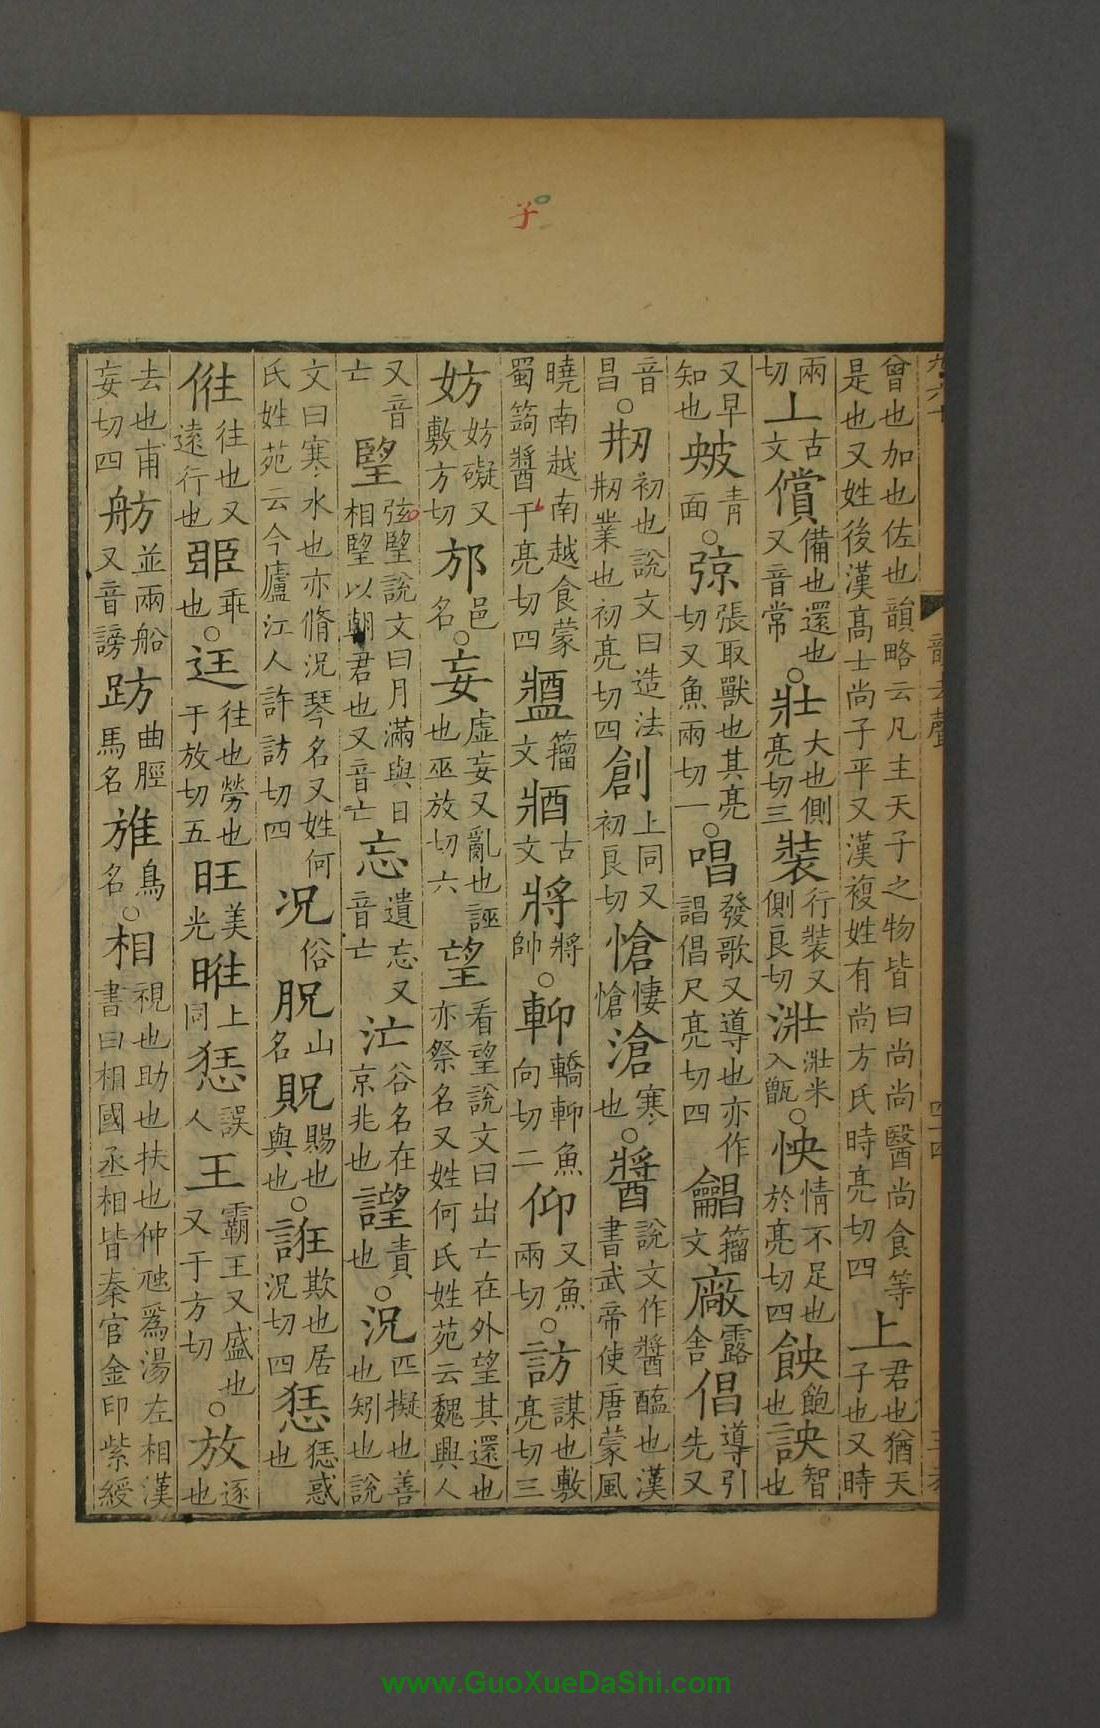 曾也加也佐也韻略云凡主天子之物皆曰尚尚醫尚食等是也又姓後漢高士尚子平又漢複姓有尚方氏時亮切四上君也猶天子也又時
兩切丄古文償備也還也又音常○壯大也側亮切三裝行裝又側良切漴壯米入甑○怏情不足也於亮切四䬬飽也訣智也
又早知也䩕青面○弶張取獸也其亮切又魚兩切一○唱發歌又導也亦作誯倡尺亮切四䶴籀文廠露舍倡導引先又
音昌○剏初也說文曰造法剏業也初亮切四創上同又初良切愴悽愴滄寒也○醬說文作醬醢也漢書武帝使唐蒙風
曉南越南越食蒙蜀蒟醬子亮切四𤖙籀文𤖕古文將將帥○䡎轎䡎魚向切二仰又魚兩切○訪謀也敷亮切三
妨妨礙又敷方切邡邑名○妄虛妄又亂也誣也巫放切六望看望說文曰出亡在外望其還也亦祭名又姓何氏姓苑云魏興人
又音亡朢弦朢說文曰月滿與日相朢以朝君也又音亡忘遺忘又音亡汒谷名在京兆也謹責也○況匹擬也善也矧也說
文曰寒水也亦脩況琴名又姓何氏姓苑云今廬江人許訪切四况俗𦚞山名貺賜也與也○誑欺也居況切四惩惑也
往也又遠行也𦣝乖也○迋往也勞也于放切五旺美光暀上同誤人王霸王又盛也又于方切○放逐也
去也甫妄切四舫並兩船又音謗趽曲脛馬名鴋鳥名○相視也助也扶也仲虺為湯左相漢書曰相國丞相皆秦官金印紫綬
子
www.GuoXueDaShi.com